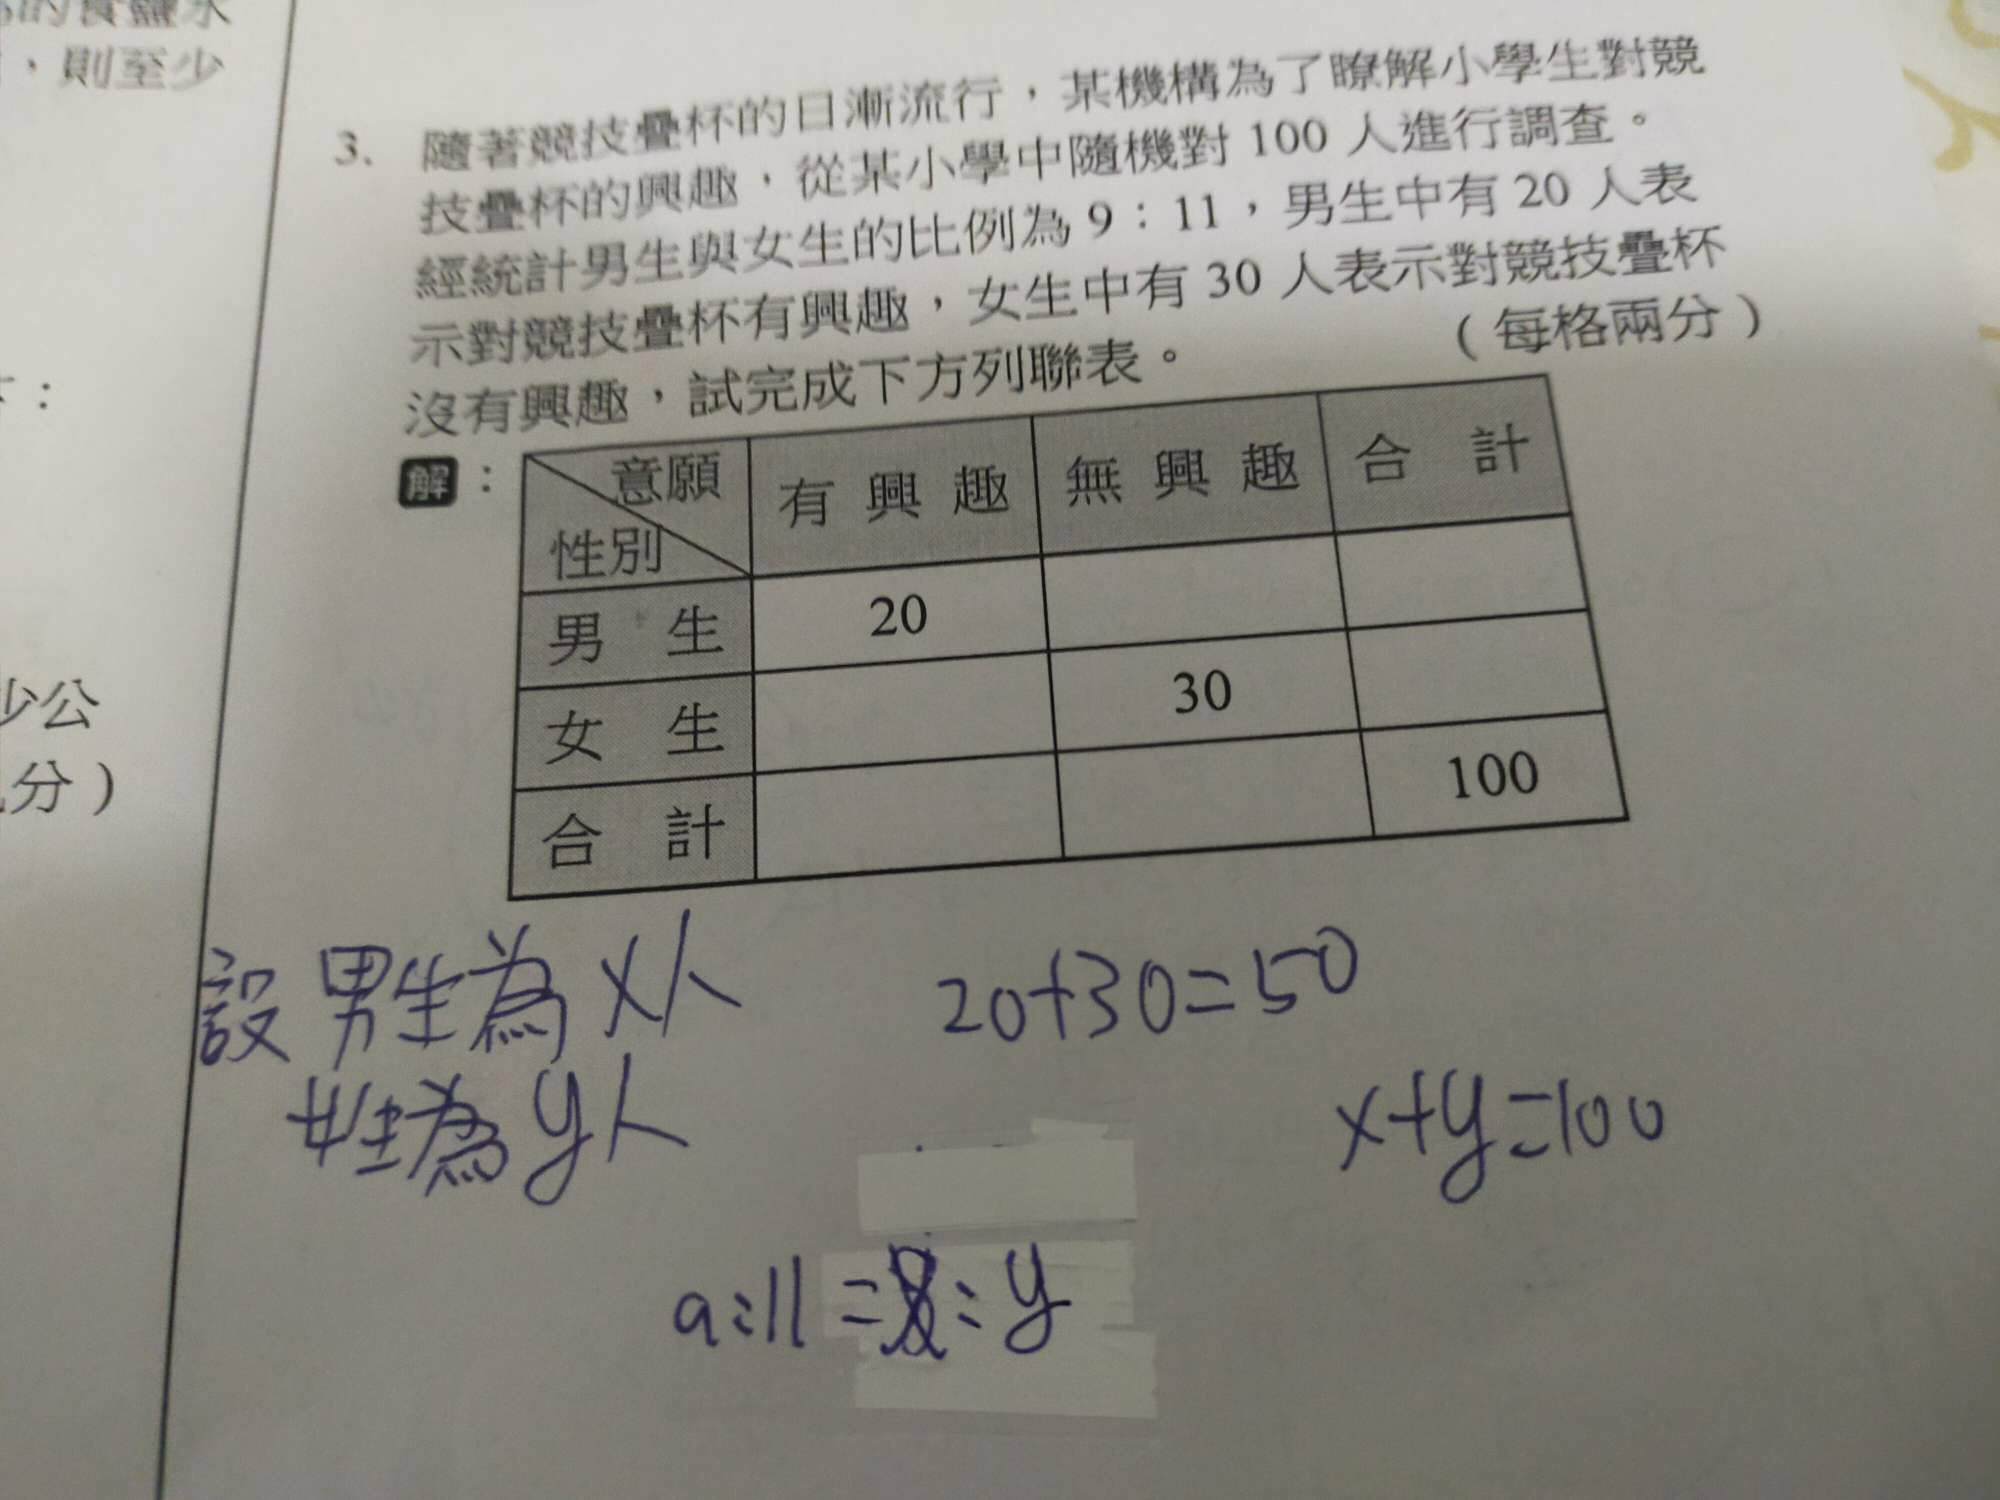 的食鹽水
，則至少
：
少公
分）
3. 隨著競技疊杯的日漸流行，某機構為了瞭解小學生對競
技疊杯的興趣，從某小學中隨機對 100 人進行調查。
經統計男生與女生的比例為 9：11，男生中有 20 人表
示對競技疊杯有興趣，女生中有 30 人表示對競技疊杯
沒有興趣，試完成下方列聯表。（每格兩分）
解：
意願 有興趣 無興趣 合計
性別
男生 20
女生 30
合計 100
設男生為x人 20+30=50
女生為y人 x+y=100
9:11=x:y